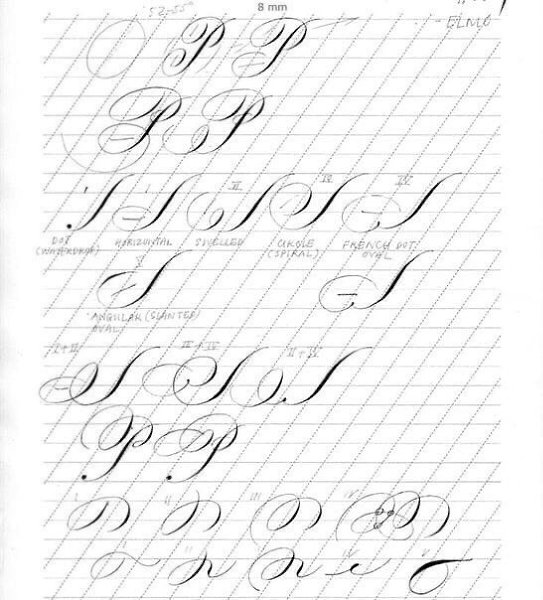 8 mm
52-55°
- ELMO
P P
P P
I II IV IV
DOT HORIZONTAL SWELLED CIRCLE FRENCH DOT
(WATERDROP) (SPIRAL) OVAL
V
ANGULAR (SLANTED
OVAL)
I + II III + IV II + IV
P P
I II III IV
II III IV V